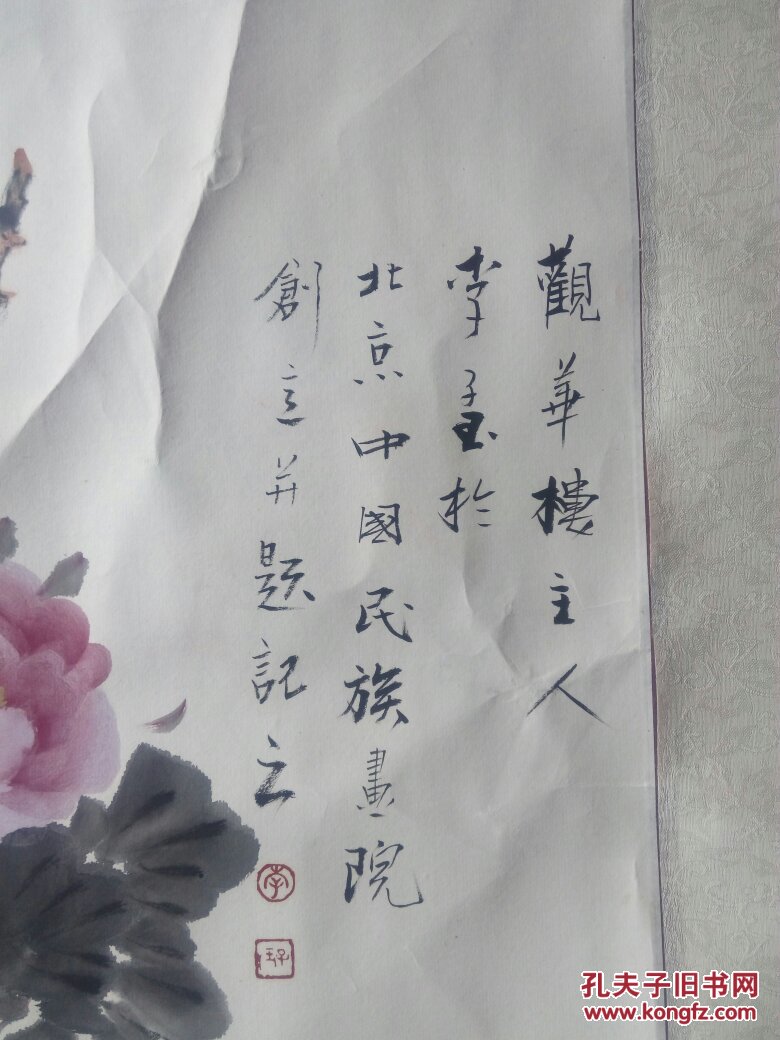 觀華樓主人
李子玉於
北京中國民族畫院
創立并題記之
李
子玉
孔夫子旧书网
www.kongfz.com